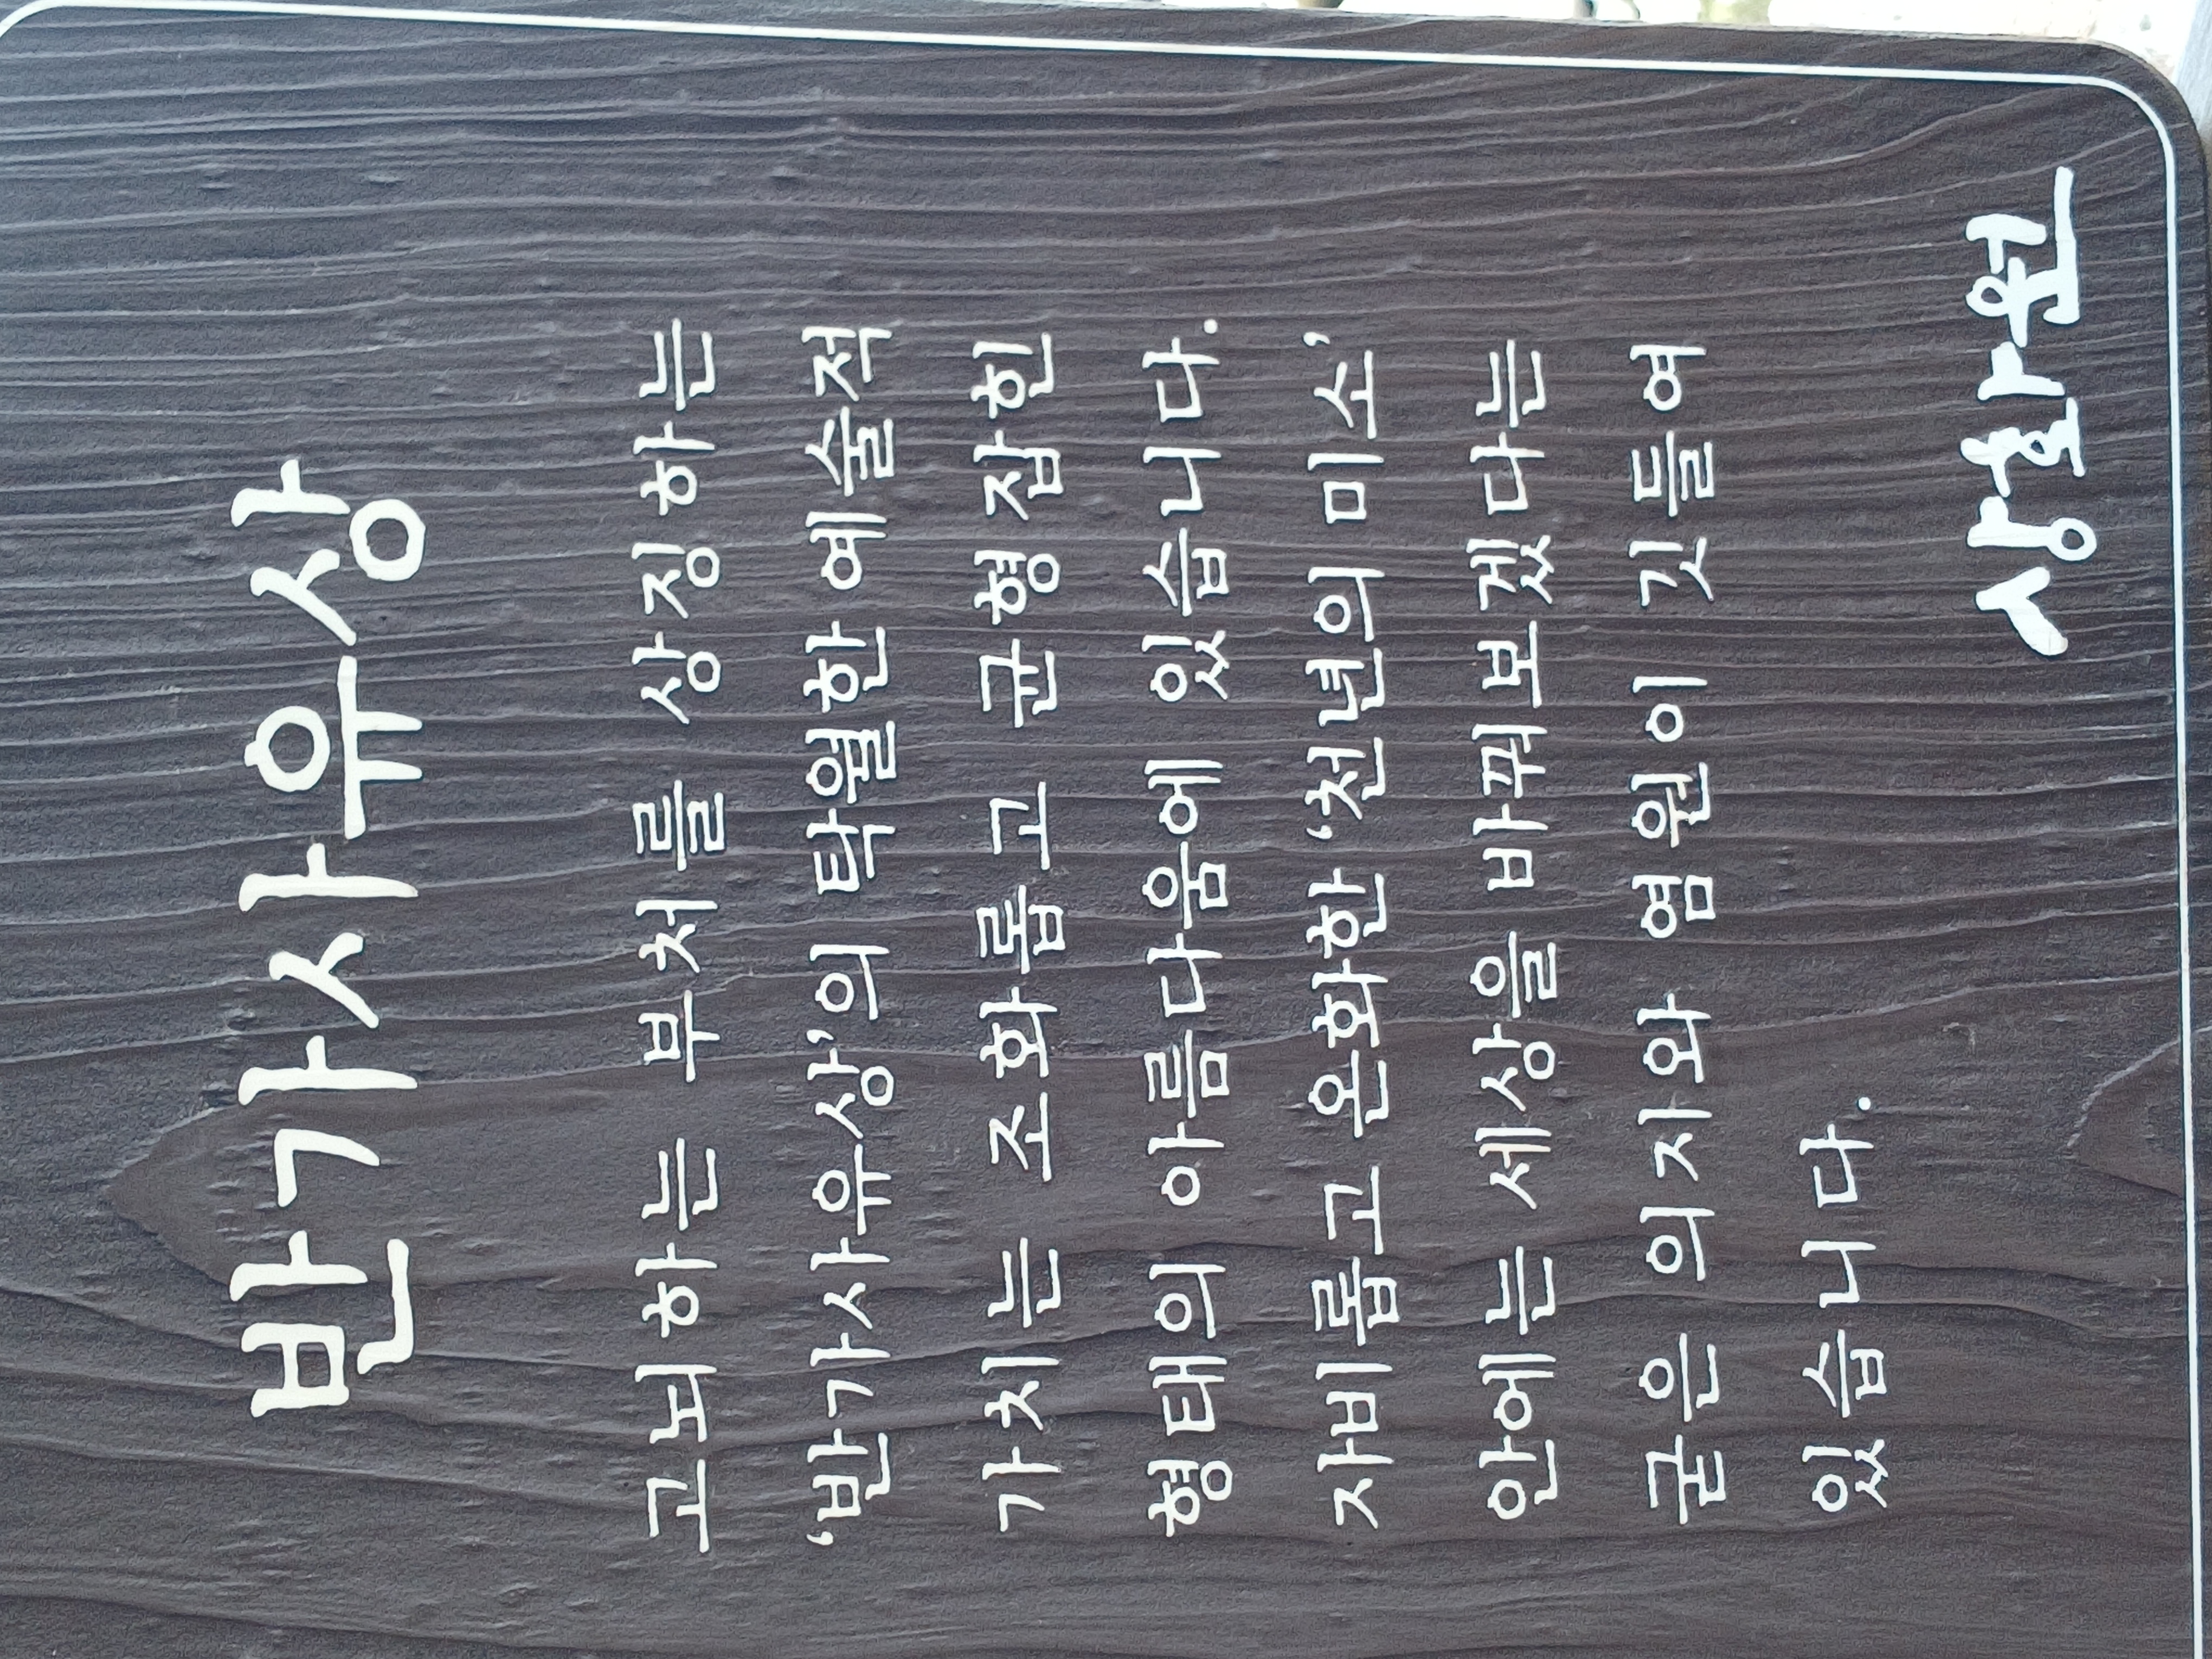 반가사유상
고뇌하는 부처를 상징하는
‘반가사유상’의 탁월한 예술적
가치는 조화롭고 균형잡힌
형태의 아름다움에 있습니다.
자비롭고 온화한 ‘천년의 미소’
안에는 세상을 바꿔보겠다는
굳은 의지와 염원이 깃들여
있습니다.
상화원